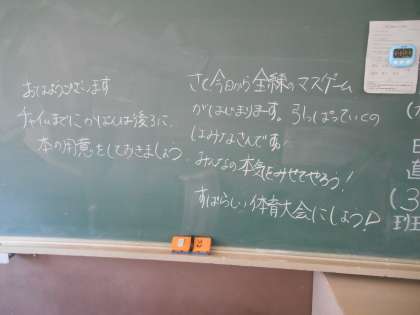 おはようございます
チャイムまでにかばんは後ろに、
本の用意をしておきましょう
さて今日から全練のマスゲーム
がはじまります。引っぱっていくの
はみなさんです!
みんなの本気をみせてやろう!
すばらしい体育大会にしよう
(3
班